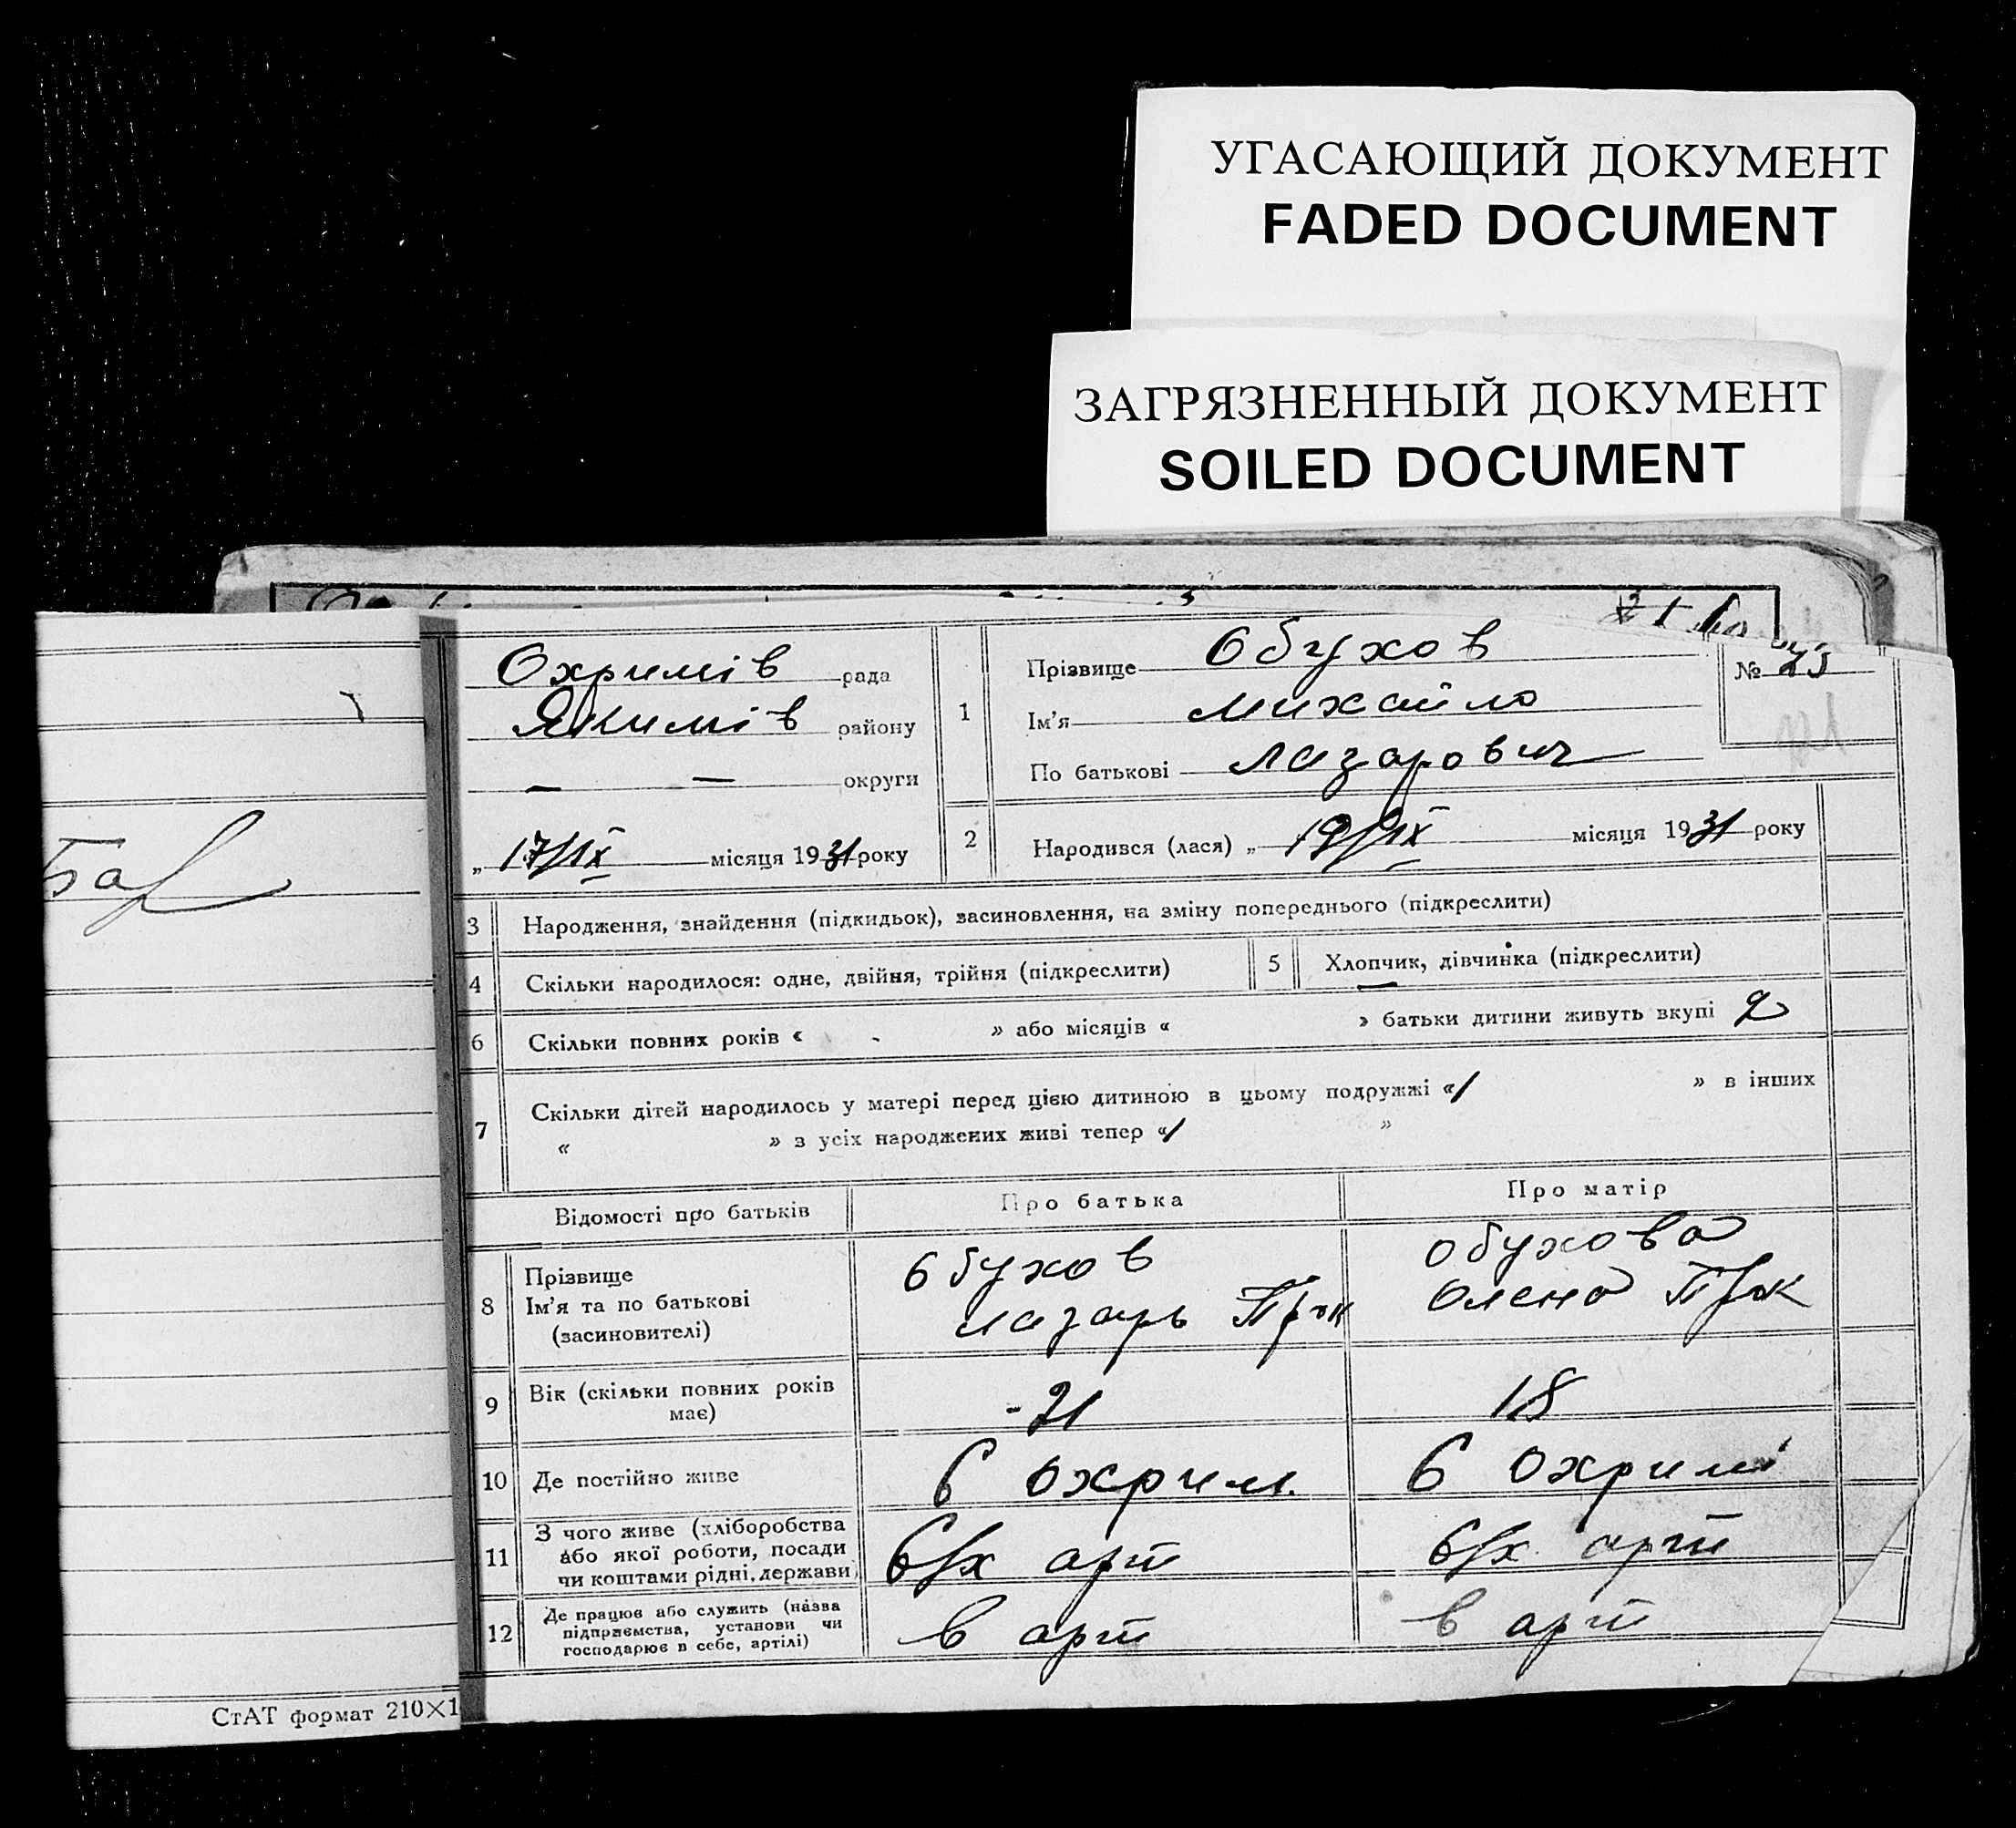 УГАСАЮЩИЙ ДОКУМЕНТ
FADED DOCUMENT
ЗАГРЯЗНЕННЫЙ ДОКУМЕНТ
SOILED DOCUMENT
Охримів рада
Якимів району
— — округи
„ 17/IX місяця 1931 року
1 Прізвище Обухов
Ім'я Михайло
По батькові Лазарович
№ 23
2 Народився (лася) „ 19/IX місяця 1931 року
3 Народження, знайдення (підкидьок), засиновлення, на зміну попереднього (підкреслити)
4 Скільки народилося: одне, двійня, трійня (підкреслити)
5 Хлопчик, дівчинка (підкреслити)
6 Скільки повних років « » або місяців « » батьки дитини живуть вкупі 2
7 Скільки дітей народилось у матері перед цією дитиною в цьому подружжі «1 » в інших
« » з усіх народжених живі тепер «1 »
Відомості про батьків Про батька Про матір
8 Прізвище
Ім'я та по батькові
(засиновителі)
Обухов
Лазарь Прок
Обухова
Олена Прок
9 Вік (скільки повних років
має)
21
18
10 Де постійно живе
в Охрим.
в Охримі
11 З чого живе (хліборобства
або якої роботи, посади
чи коштами рідні, держави)
с/х арт
с/х арт
12 Де працює або служить (назва
підприємства, установи чи
господарює в себе, артілі)
в арт
в арт
СтАТ формат 210×1